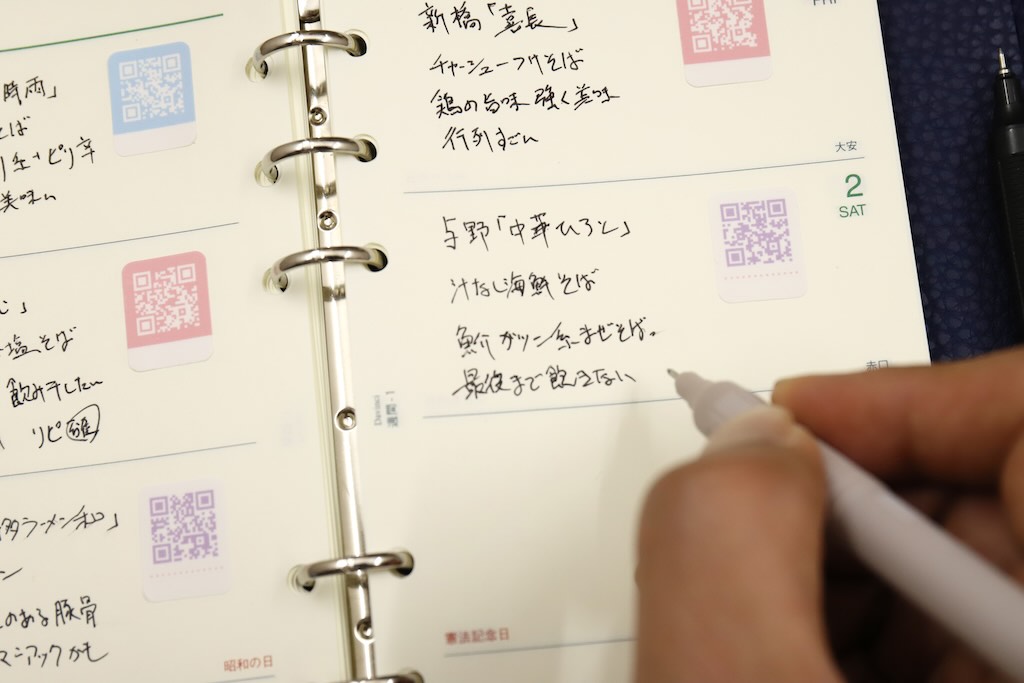 時雨」
そば
ピリ辛
美味い
」
塩そば
飲み干したい
リピ確
多ラーメン和」
ン
のある豚骨
マニアックかも
昭和の日
FRI
新橋「喜長」
チャーシューつけそば
鶏の旨味強く美味
行列すごい
大安
2
SAT
与野「中華ひろし」
汁なし海鮮そば
魚介ガツン系まぜそば。
最後まで飽きない
赤口
Davinci
週間-1
憲法記念日